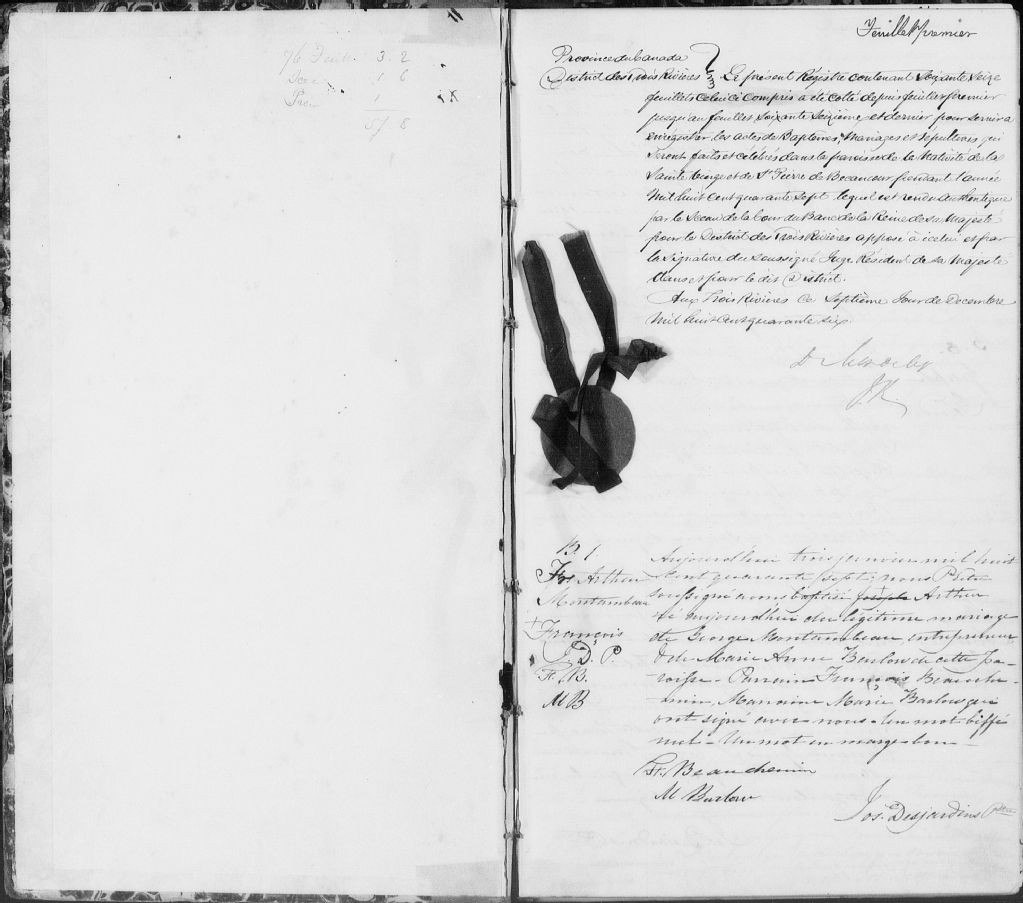 76 Feuill. 3. 2
1 6
1
5/ 8
Feuillet premier
Province du Canada
District des Trois Rivières
Le présent Régistre contenant Soixante Seize
feuillets celui ci compris a été cotté depuis feuillet premier
jusqu'au feuillet Soixante Seizième et dernier pour servir a
enregistrer les actes de Baptêmes, Mariages et Sépultures qui
seront faits et célébrés dans la paroisse de la Nativité de la
Sainte Vierge et de St Pierre de Becancour pendant l'année
Mil huit Cent quarante Sept lequel est rendu authentique
par le Sceau de la Cour du Banc de la Reine de sa Majesté
pour le District des Trois Rivières apposé à icelui et par
la Signature du Soussigné Juge Résident de sa Majesté
dans et pour le dit District.
Aux Trois Rivières ce Septième Jour de Decembre
Mil huit Cent quarante Six.
B. 1
Frs Arthur
Montambeau
+ François
J. D. P.
F. B.
M B
Aujourdhui trois janvier mil huit
cent quarante sept, nous Ptre
soussigné avons baptisé Joseph Arthur
né aujourdhui du légitime mariage
de George Montambeau, entrepreneur
& de Marie Anne Barlow de cette pa-
roisse - Parrain François Beauche-
min, Marraine Marie Barlow qui
ont signé avec nous - Un mot biffé
nul - Un mot en marge bon -
Fr. Beauchemin
M Barlow
Jos. Desjardins Ptre